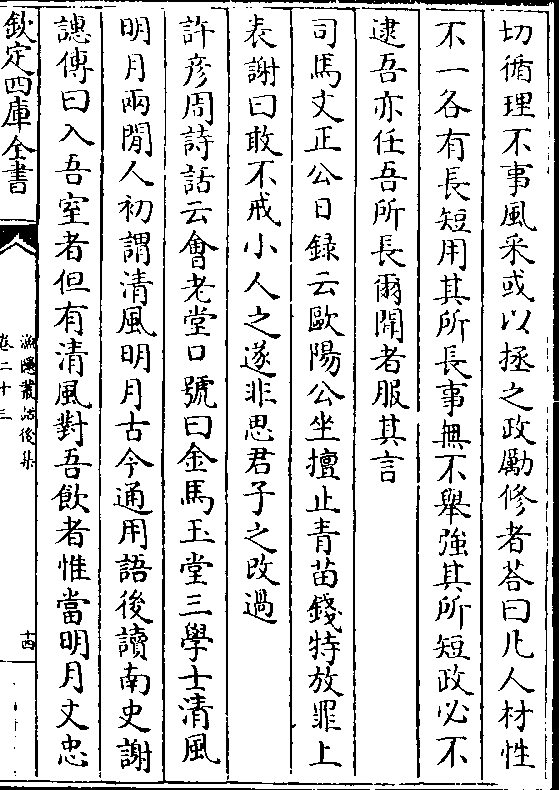 切循理不事風采或以拯之政勵修者荅曰凡人材性
不一各有長短用其所長事無不舉強其所短政必不
逮吾亦任吾所長爾聞者服其言
司馬文正公日録云歐陽公坐擅止青苗錢特放罪上
表謝曰敢不戒小人之遂非思君子之改過
許彦周詩話云會老堂口號曰金馬玉堂三學士清風
明月兩閒人初謂清風明月古今通用語後讀南史謝
譓傳曰入吾室者但有清風對吾飲者惟當明月文忠
欽定四庫全書
漁隱叢話後集
卷二十三
十四